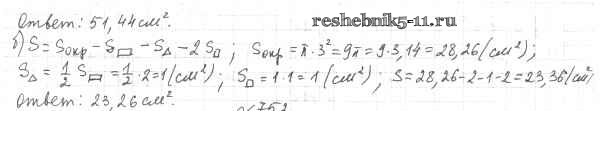 Ответ: 51,44 см².
reshebnik5-11.ru
б) S = Sокр − S▭ − S△ − 2S▫ ; Sокр = π · 3² = 9π = 9 · 3,14 = 28,26 (см²) ;
S△ = 1/2 S▭ = 1/2 · 2 = 1 (см²) ; S▫ = 1 · 1 = 1 (см²) ; S = 28,26 − 2 − 1 − 2 = 23,36 (см²)
Ответ: 23,26 см².